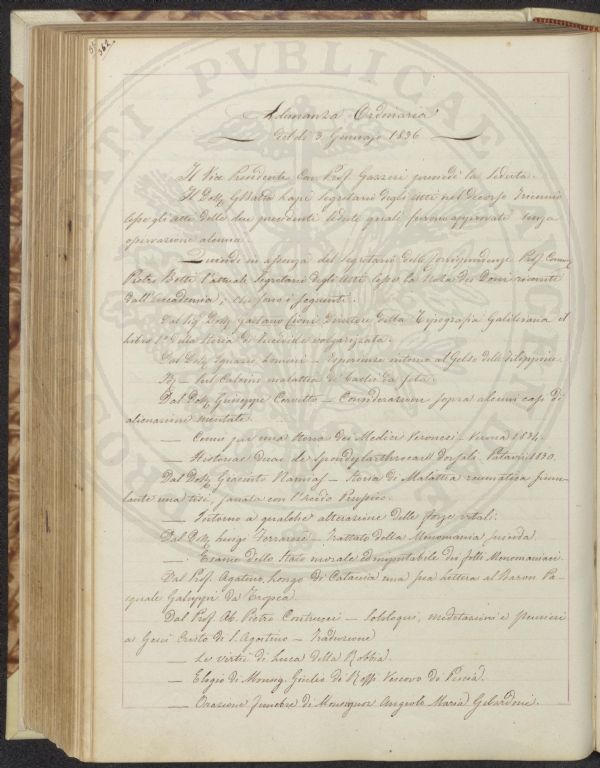 362.
Adunanza Ordinaria
del dì 3. Gennajo 1836
Il Vice Presidente Cav. Prof. Gazzeri presiede la seduta.
Il Dott. segretario degli atti nel decorso triennio
lesse gli atti delle due precedenti sedute quali furono approvate senza
osservazione alcuna.
Quindi in assenza del segretario delle Corrispondenze Prof.
Pietro Betti l'attuale segretario degli atti lesse la Nota dei Doni ricevuti
dall'Accademia, che sono i seguenti.
Dal Sig. Dott. Gaetano Cioni Direttore della Tipografia Galileiana il
Libro 1° della Storia di volgarizzata.
Dal Dott. Ignazio Lomeni — Esperienze intorno al Gelso delle Filippine.
— Sul Calcino malattia de' bachi da seta.
Dal Dott. Giuseppe Cervetto — Considerazioni sopra alcuni casi di
alienazione mentale.
— Cenni per una storia dei Medici Veronesi — Verona 1834.
— Historiae duae de spondylarthrocace dorsali. Patavii 1830.
Dal Dott. Giacinto Namias — Storia di Malattia reumatica simu-
lante una tisi, sanata con l'acido Prussico.
— Intorno a qualche alterazione delle forze vitali.
Dal Dott. Luigi Ferrarese — Trattato della Monomania suicida.
— Esame dello stato morale ed imputabile dei folli Monomaniaci.
Dal Prof. Agatino Longo di Catania una sua lettera al Baron Pa-
squale Galuppi da Tropea.
Dal Prof. Ab. Pietro Contrucci — Soliloqui, meditazioni e pensieri
a Gesù Cristo di S. Agostino — Traduzione
— Le virtù di Luca della Robbia.
— Elogio di Monsig. Giulio de' Rossi Vescovo di Pescia.
— Orazione funebre di Monsignor Angiolo Maria Gilardoni.
PVBLICAE